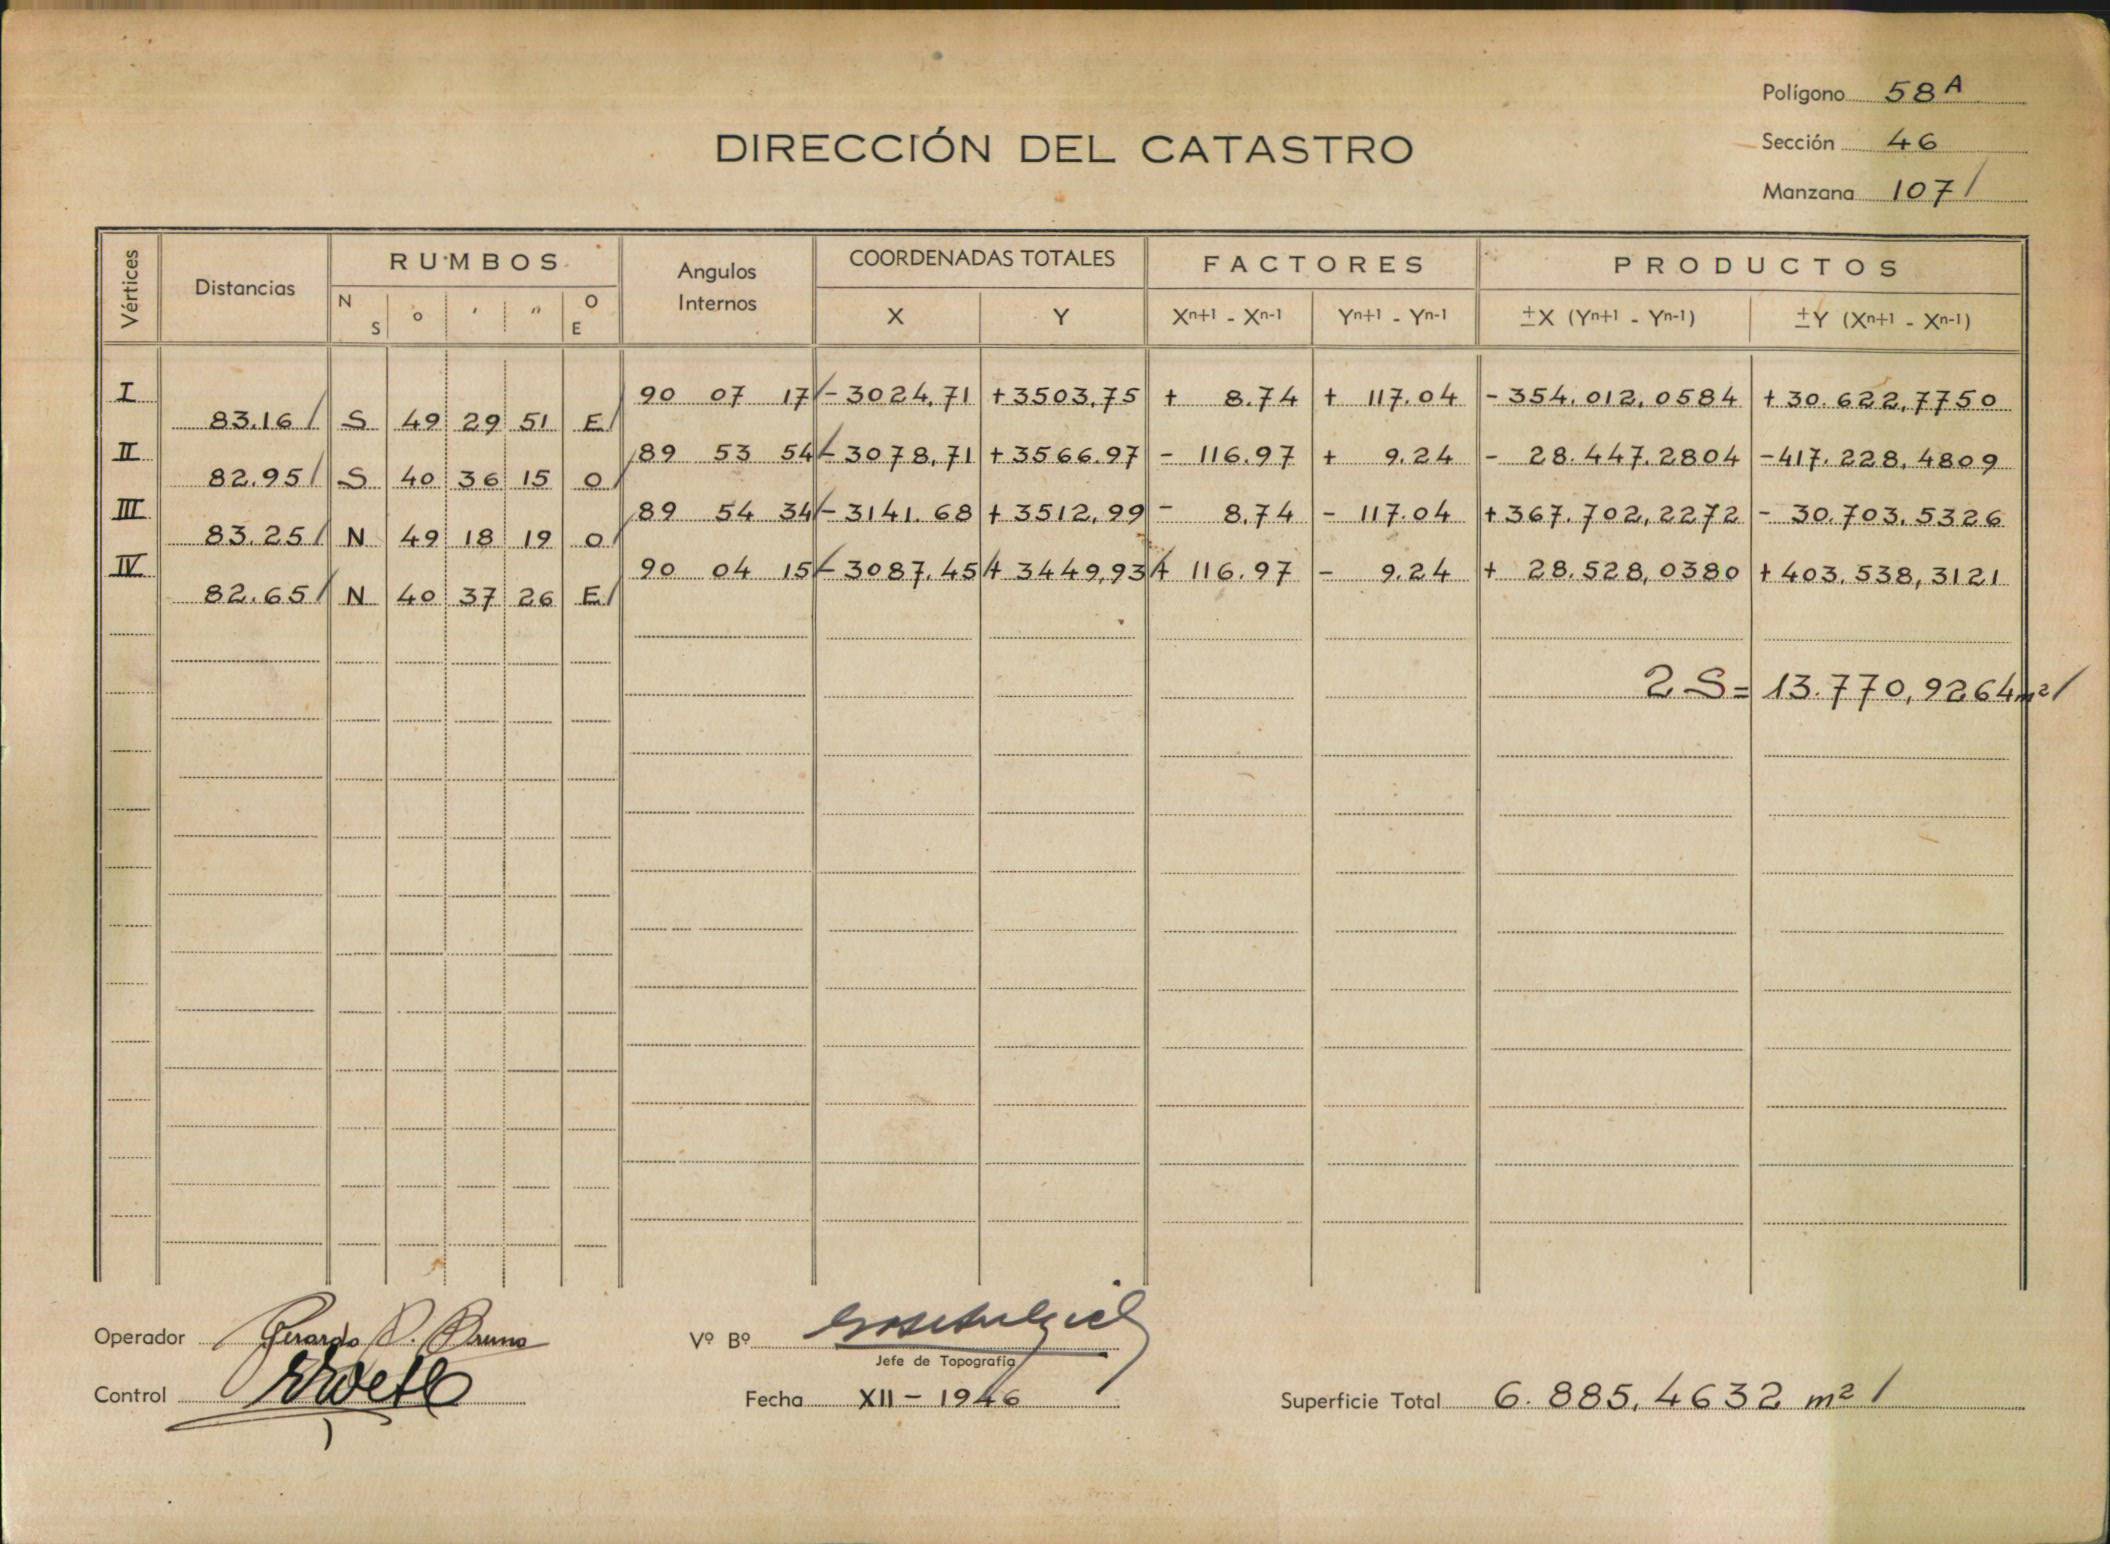 Polígono 58 A
DIRECCIÓN DEL CATASTRO
Sección 46
Manzana 107 /
Vértices Distancias RUMBOS Angulos Internos COORDENADAS TOTALES FACTORES PRODUCTOS
N S ° ' " O E X Y Xn+1 - Xn-1 Yn+1 - Yn-1 ±X (Yn+1 - Yn-1) ±Y (Xn+1 - Xn-1)
I 90 07 17 / - 3024,71 + 3503,75 + 8.74 + 117.04 - 354.012,0584 + 30.622,7750
83.16 / S 49 29 51 E /
II 89 53 54 / - 3078,71 + 3566.97 - 116.97 + 9.24 - 28.447.2804 - 417.228,4809
82.95 / S 40 36 15 O /
III 89 54 34 / - 3141.68 + 3512,99 - 8,74 - 117.04 + 367.702,2272 - 30.703,5326
83.25 / N 49 18 19 O /
IV 90 04 15 / - 3087.45 + 3449,93 + 116.97 - 9.24 + 28.528,0380 + 403.538,3121
82.65 / N 40 37 26 E /
2 S = 13.770,9264 m² /
Operador Gerardo P. Bruno
Vº Bº
Jefe de Topografía
Control
Fecha XII - 1946
Superficie Total 6.885,4632 m² /